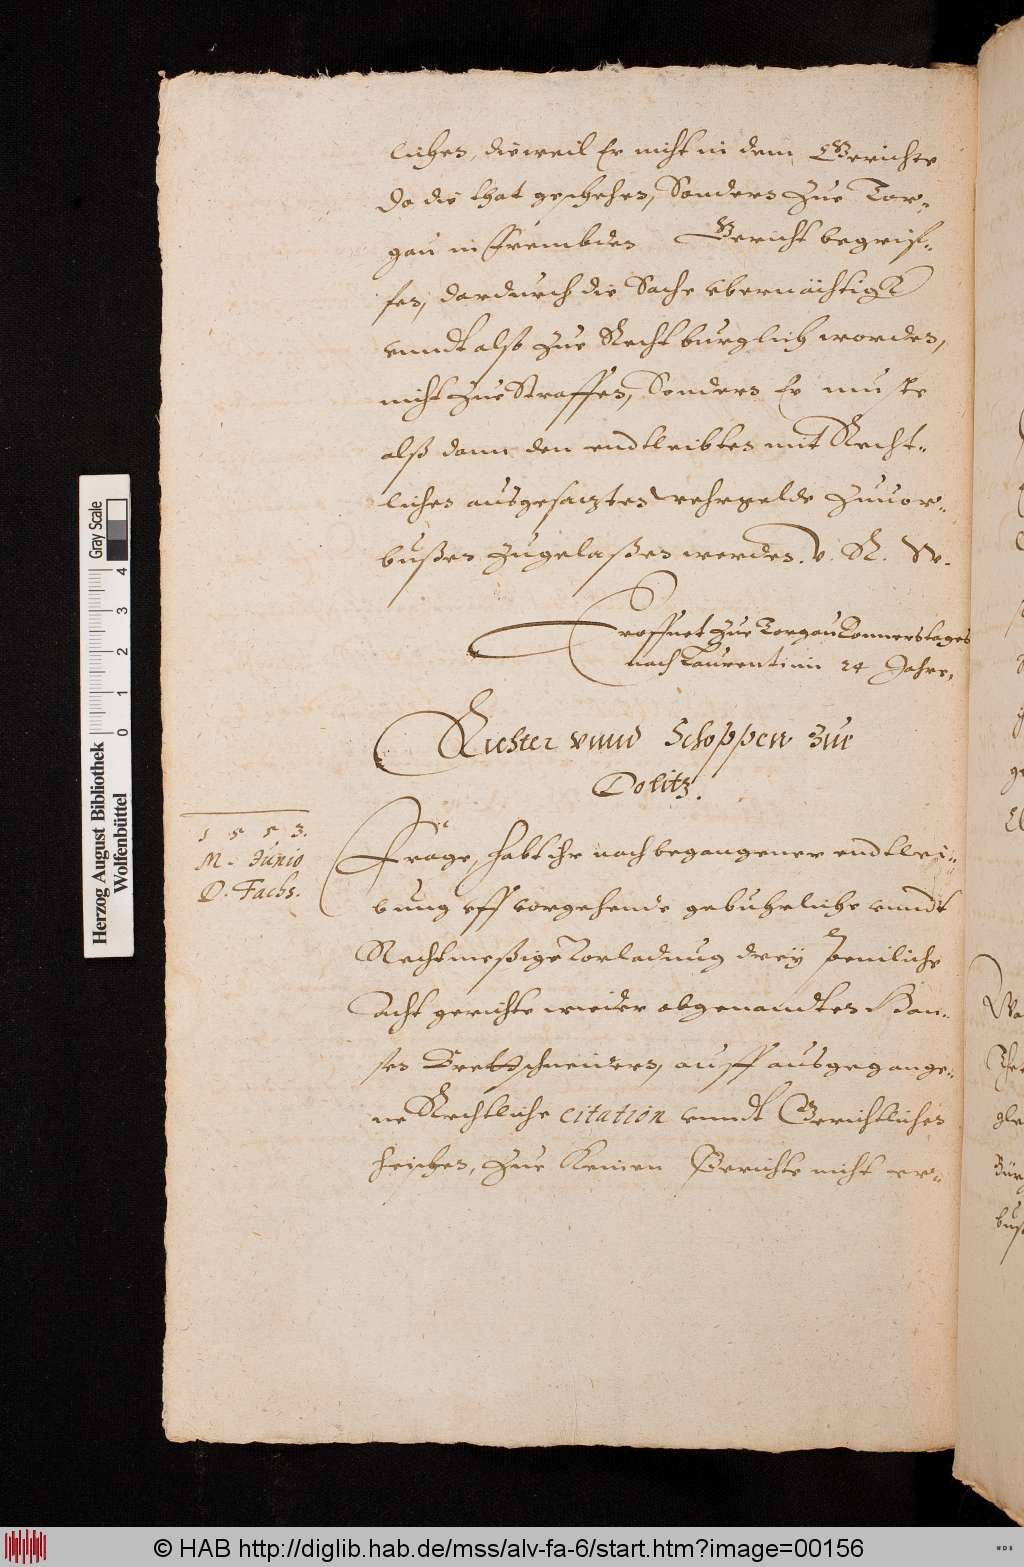 lichen, dieweil Er nicht in dem Gerichte
da die that geschehen, Sondern zue Tor-
gau in frembden Gericht begrif-
fen, dardurch die Sache vbernächtigk
vnndt alß zue Recht burglich worden,
nicht zue Straffen, Sondern Er muste
alß dann den endtleibten mit Recht-
lichen ausgesaczten wehrgelde zuuor-
bußen zugelaßen werden. V. R. W.
Eroffnet zue Torgau Donnerstages
nach Laurentium 24 Jahre,
Richter vnnd Schoppen zur
Dolitz.
1553.
M. Junio
D. Fachs.
Frage, habt ihr nach begangener endtlei-
bung vff vorgehende gebuhrliche vnndt
Rechtmeßige Vorladung dreÿ peinliche
Acht gerichte wieder obgenandten Han-
sen Brettschneiders, auff ausgegange-
ne Rechtliche citation vnndt Gerichtliches
heischen, zue keinem Gerichte nicht er-
Herzog August Bibliothek
Wolfenbüttel
0 1 2 3 4
Gray Scale
© HAB http://diglib.hab.de/mss/alv-fa-6/start.htm?image=00156